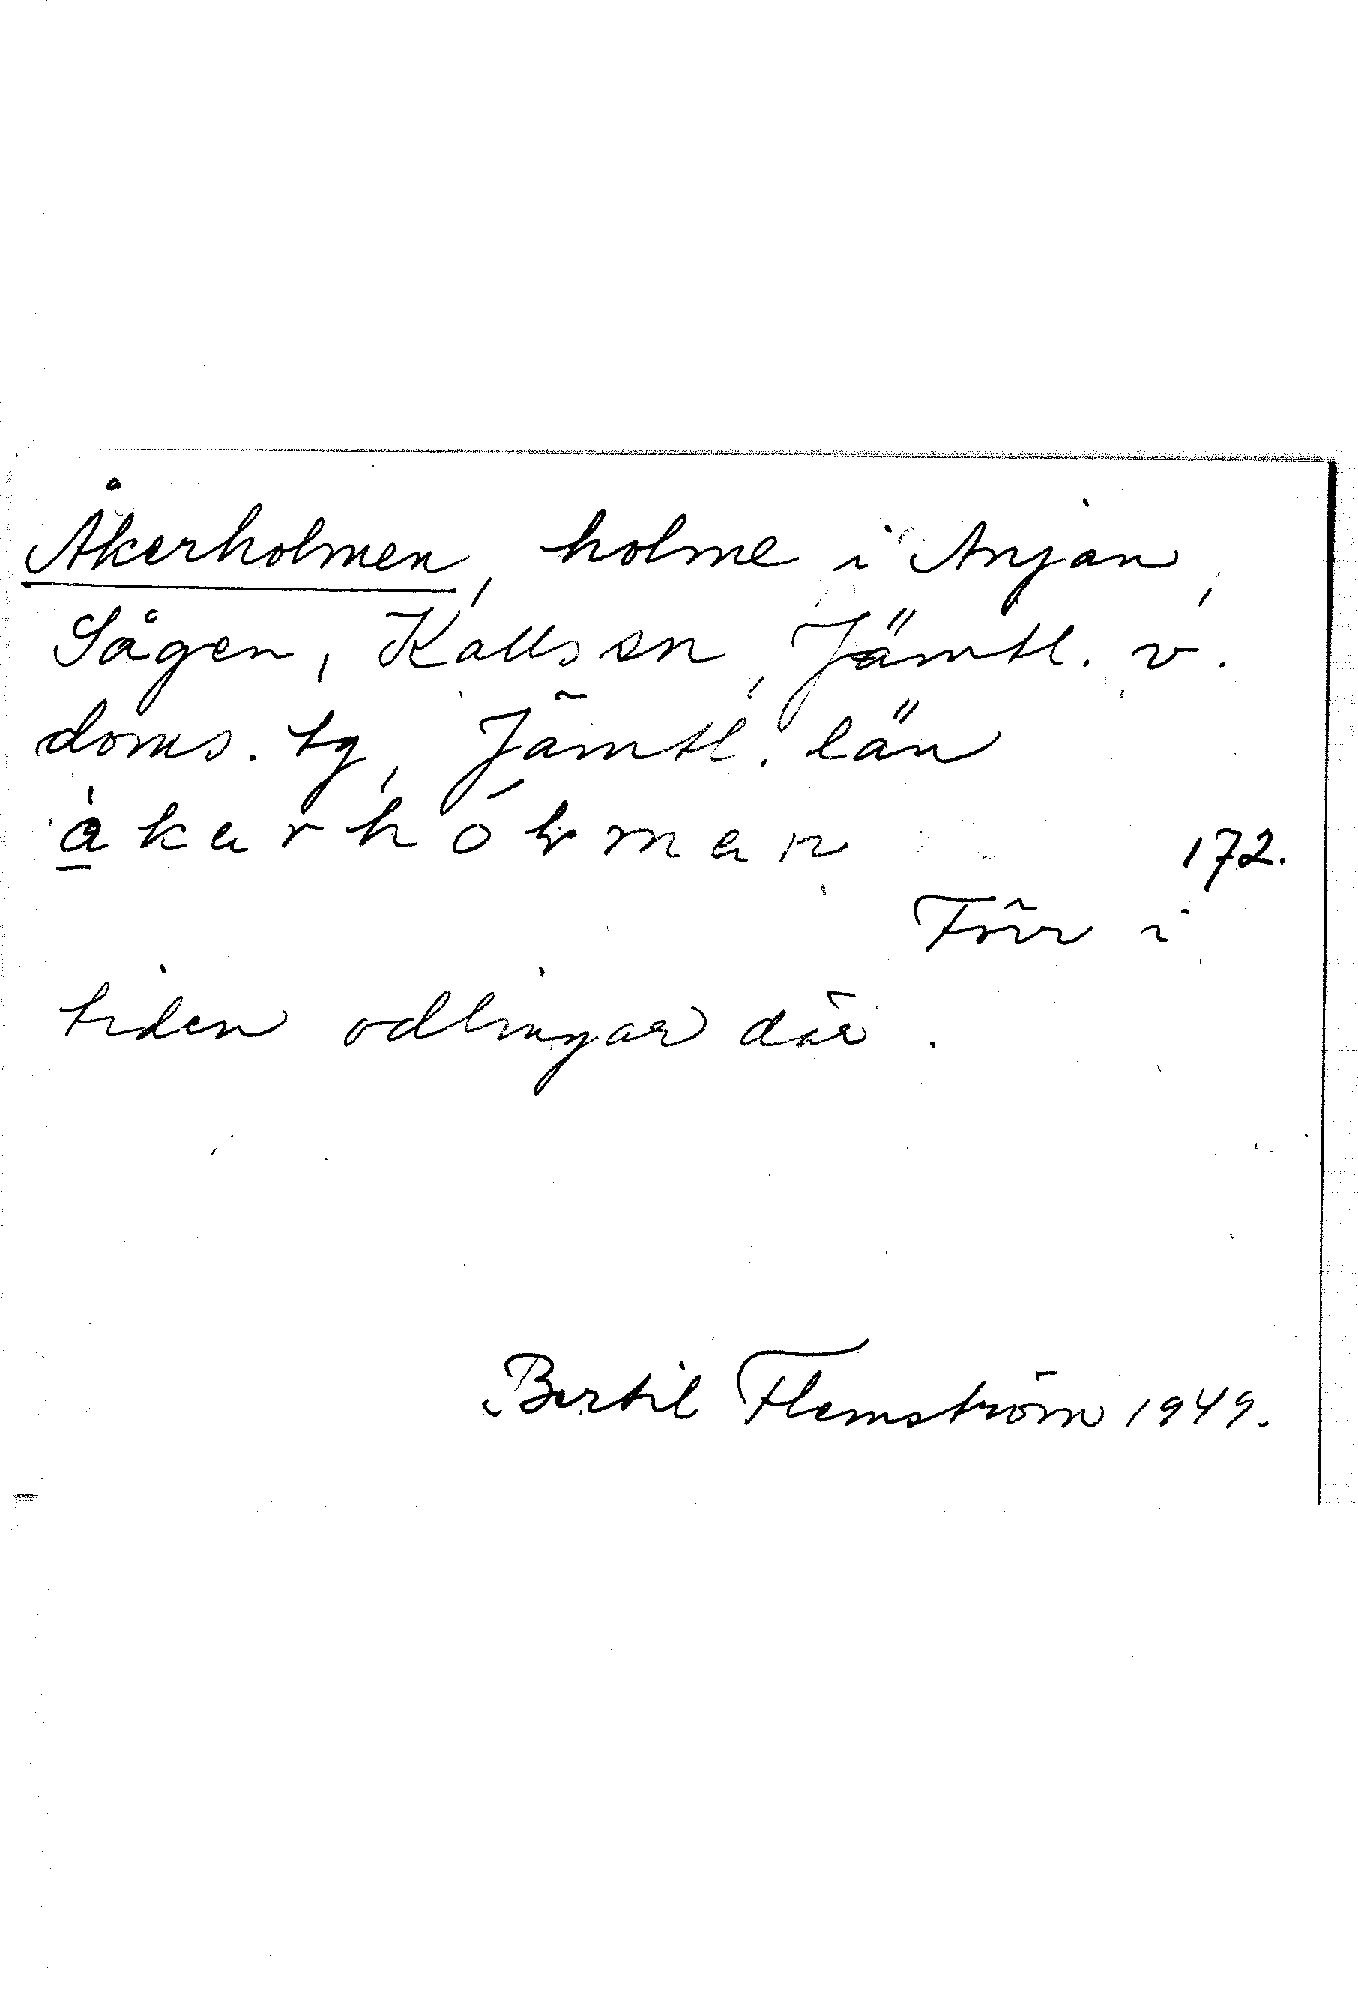 Åkerholmen, holme i Anjan,
Sågen, Kalls sn, Jämtl. v.
doms. tg, Jämtl. län
172.
Förr i
tiden odlingar där.
Bertil Flemström 1949.